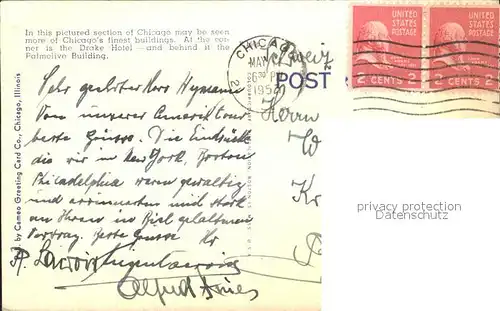 In this pictured section of Chicago may be seen
more of Chicago's finest buildings. At the cor-
ner is the Drake Hotel — and behind it the
Palmolive Building.
Pub. by Cameo Greeting Card Co., Chicago, Illinois
CHICAGO
MAY
6 30 P
1952
2
UNITED
STATES
POSTAGE
2 CENTS 2
UNITED
STATES
POSTAGE
2 CENTS 2
Schweiz
POST
Herrn
W
Kr
Sehr geehrter Herr
Von unserer Amerik tour
beste Grüsse. Die Eindrücke
die wir in New York, Boston
Philadelphia waren gewaltig
und erinnerten mich stark
an Ihren in Biel gehaltenen
Vortrag. Beste Grüsse Ihr
Alfred
privacy protection
Datenschutz